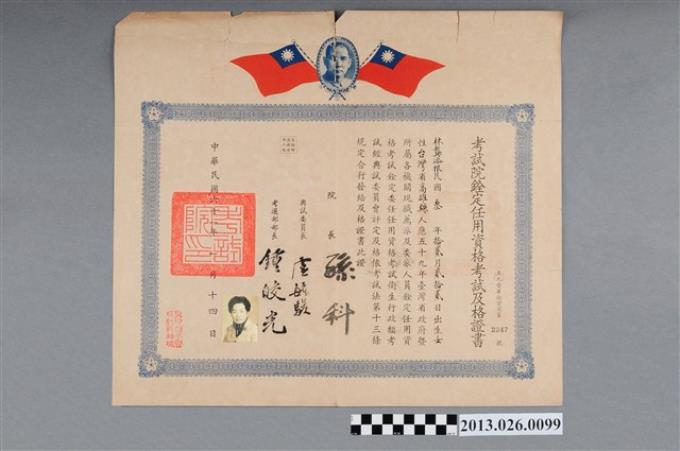 考試院銓定任用資格考試及格證書
2247
號
民國叁年拾貳月貳拾貳日出生女
性台灣省高雄縣人應五十九年臺灣省政府暨
所屬各機關現職薦派及委派人員銓定任用資
格考試銓定委任任用資格考試衛生行政類考
試經典試委員會評定及格依考試法第十三條
規定合行發給及格證書此證
院長
孫科
典試委員長
考選部部長
鍾皎光
中華民國
年
月十四日
考試院印
2013.026.0099